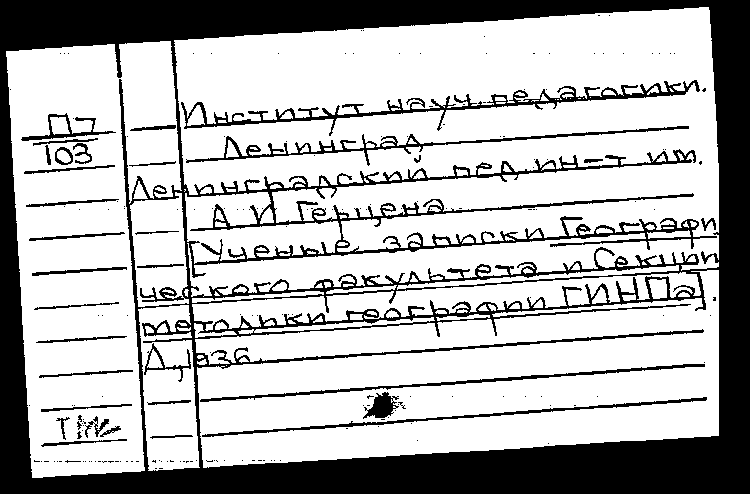 Институт науч. педагогики.
Пч
103
Ленинград
Ленинградский пед. ин-т им.
А. И. Герцена
[Ученые записки Географи
ческого факультета и Секции
методики географии ГИНПа].
Л., 1936.